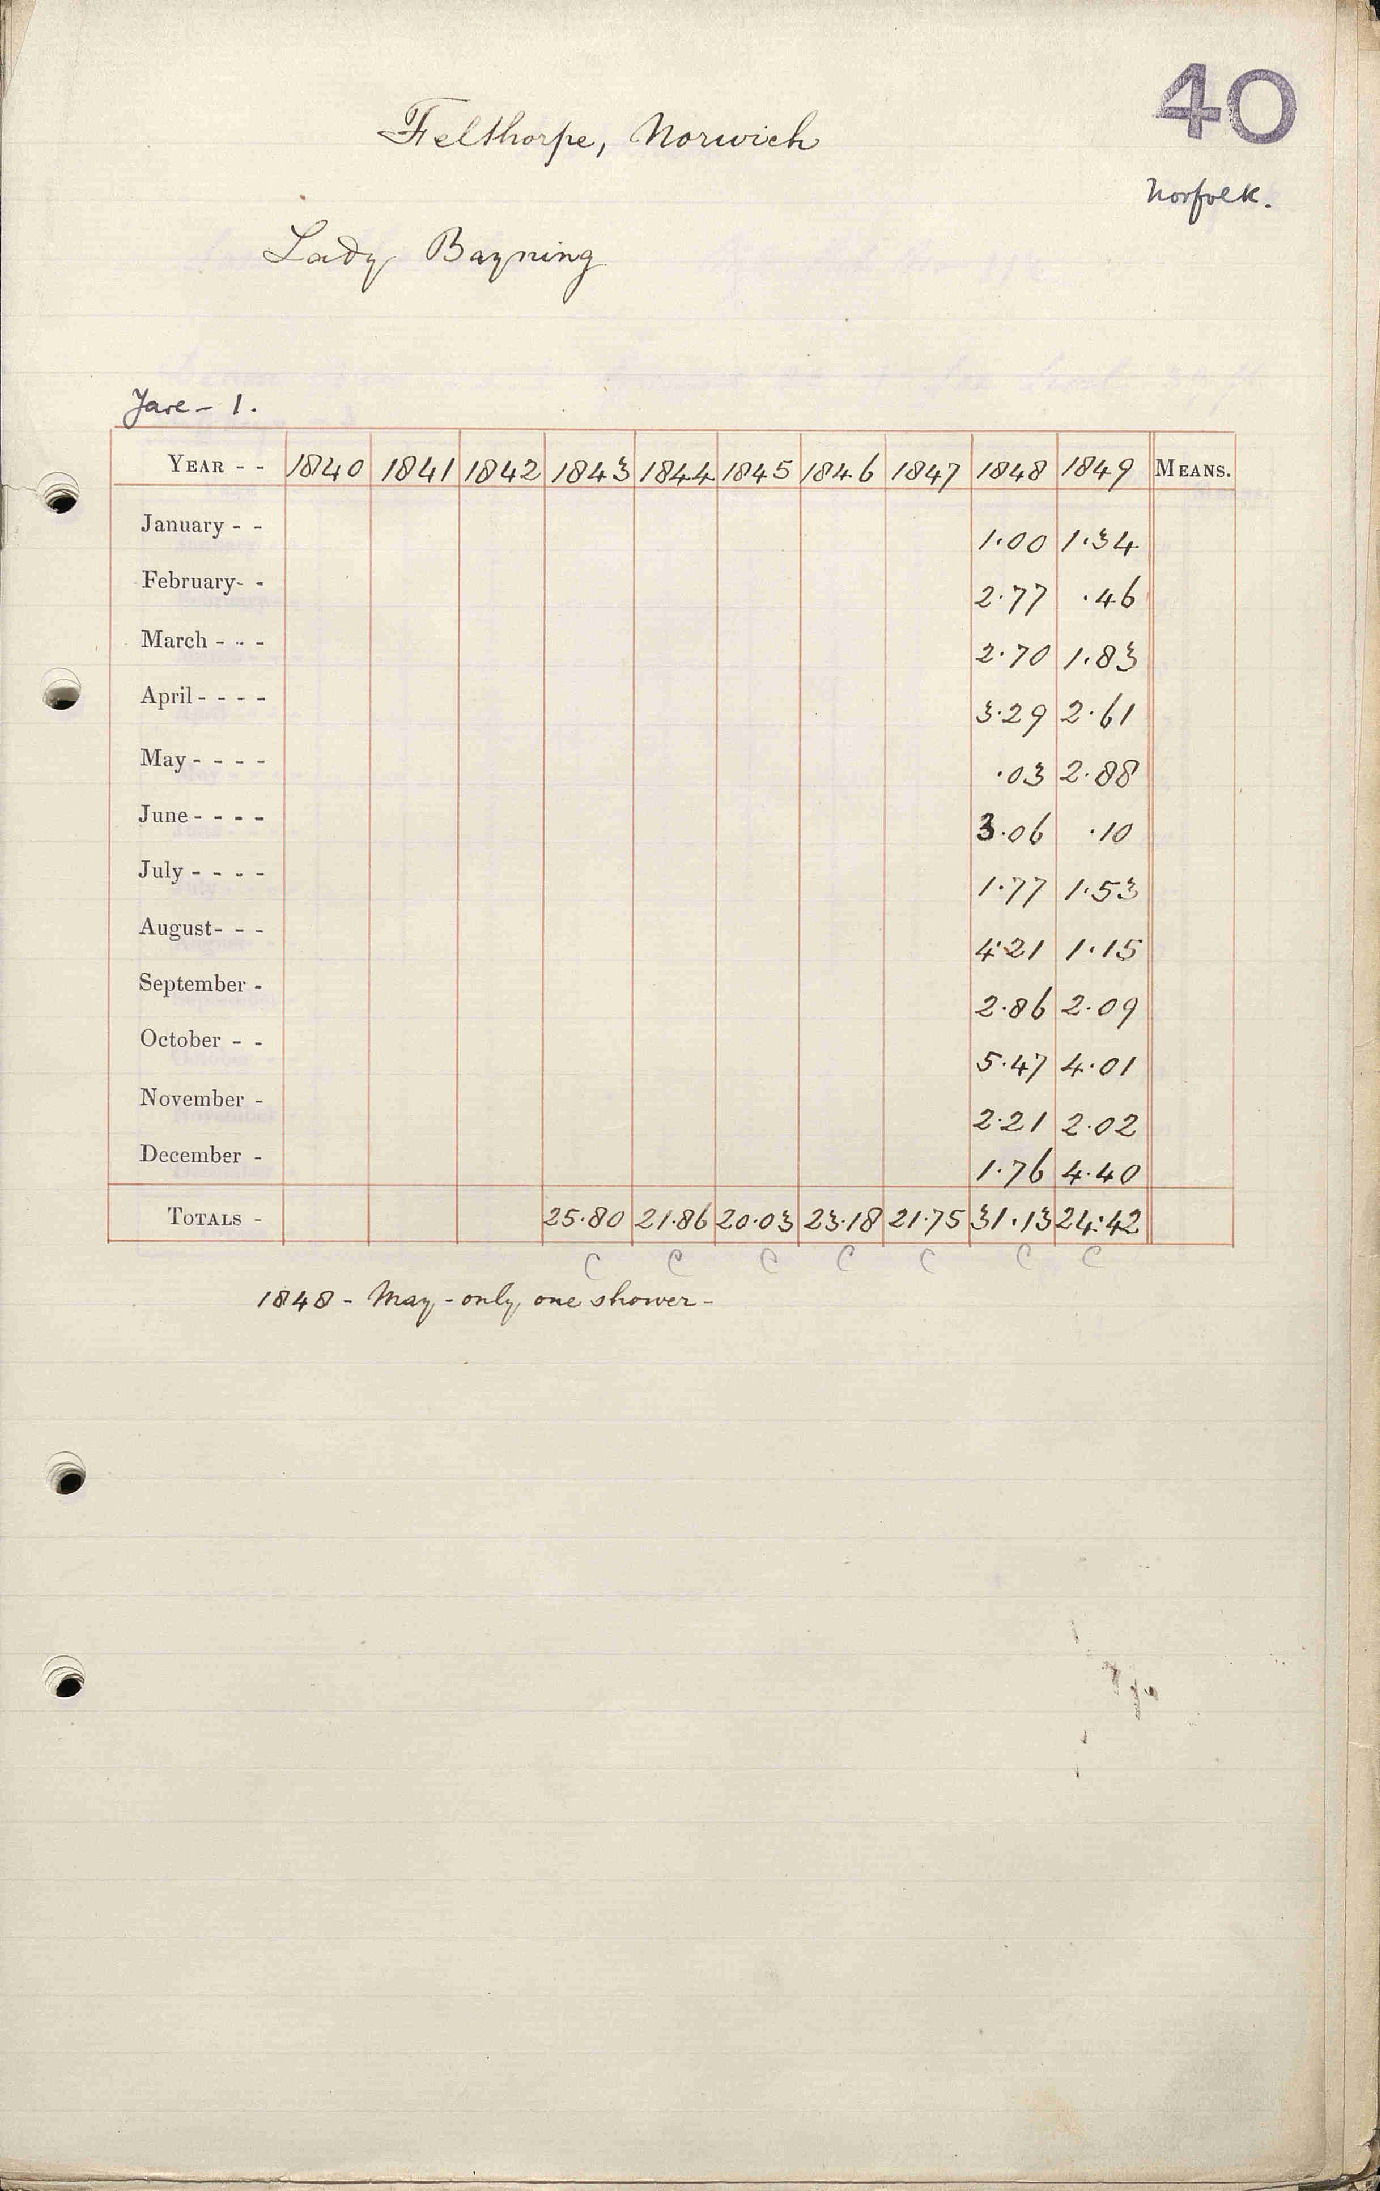 40
Felthorpe, Norwich
Norfolk.
Lady Bayning
Yare - 1.
YEAR - - 1840 1841 1842 1843 1844 1845 1846 1847 1848 1849 MEANS.
January - - 1.00 1.34
February- - 2.77 .46
March - - - 2.70 1.83
April - - - - 3.29 2.61
May - - - - .03 2.88
June - - - - 3.06 .10
July - - - - 1.77 1.53
August- - - 4.21 1.15
September - 2.86 2.09
October - - 5.47 4.01
November - 2.21 2.02
December - 1.76 4.40
TOTALS - 25.80 21.86 20.03 23.18 21.75 31.13 24.42
C C C C C C C
1848 - May - only one shower -